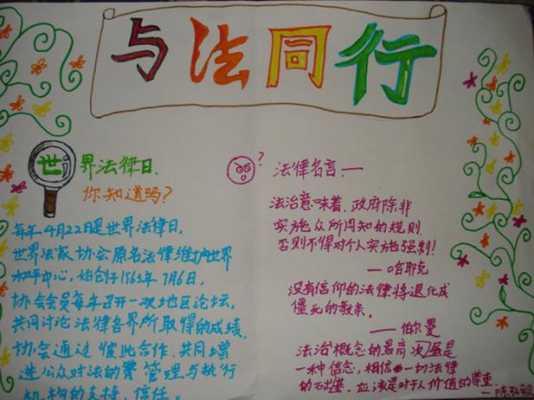 与法同行
世界法律日
你知道吗?
每年4月22日是世界法律日。
世界法家协会原名法律维护世界
和平中心, 始创于1963年7月6日,
协会会员每年召开一次地区论坛,
共同讨论法律各界所取得的成绩,
协会通过彼此合作、共同增
进公众对法的 管理与执行
机构的支持、信任。
?
法律名言:—
法治意味着, 政府除非
实施众所周知的规则
否则不得对个人实施强制!
——哈耶克
没有信仰的法律将退化成
僵死的教条。
——伯尔曼
法治概念的最高 是
一种信念, 相信一切法律
的 应该是对于人价值的尊重